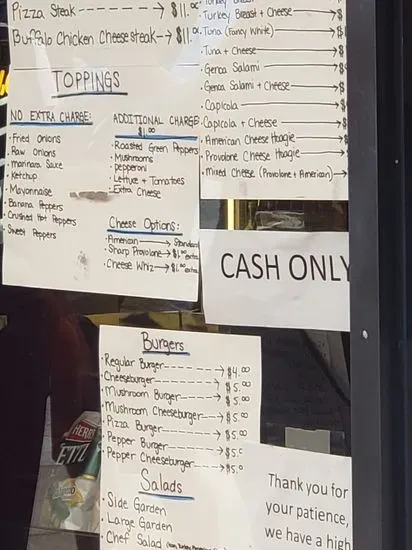 Pizza Steak ---------→ $11.00
Buffalo Chicken Cheesesteak--→$11.00
TOPPINGS
NO EXTRA CHARGE:
• Fried Onions
• Raw Onions
• marinara Sauce
• Ketchup
• Mayonnaise
• Banana Peppers
• Crushed Hot Peppers
• Sweet Peppers
ADDITIONAL CHARGE:
$1.00
• Roasted Green Peppers
• Mushrooms
• pepperoni
• Lettuce + Tomatoes
• Extra Cheese
Cheese Options:
• American → Standard
• Sharp Provolone → $1.00 extra
• Cheese Whiz → $1.00 extra
• Turkey Breast + Cheese → $
• Tuna (Fancy White) → $
• Tuna + Cheese → $
• Genoa Salami → $
• Genoa Salami + Cheese → $
• Capicola → $
• Capicola + Cheese → $
• American Cheese Hoagie → $
• Provolone Cheese Hoagie → $
• Mixed Cheese (Provolone + American) →
CASH ONLY
Burgers
• Regular Burger ------→ $4.00
• Cheeseburger ------→ $5.00
• Mushroom Burger ----→ $5.00
• Mushroom Cheeseburger --→ $5.00
• Pizza Burger ------→ $5.00
• Pepper Burger -----→ $5.0
• Pepper Cheeseburger ---→ $5.0
Salads
• Side Garden
• Large Garden
• Chef Salad
Thank you for
your patience,
we have a high
HERR